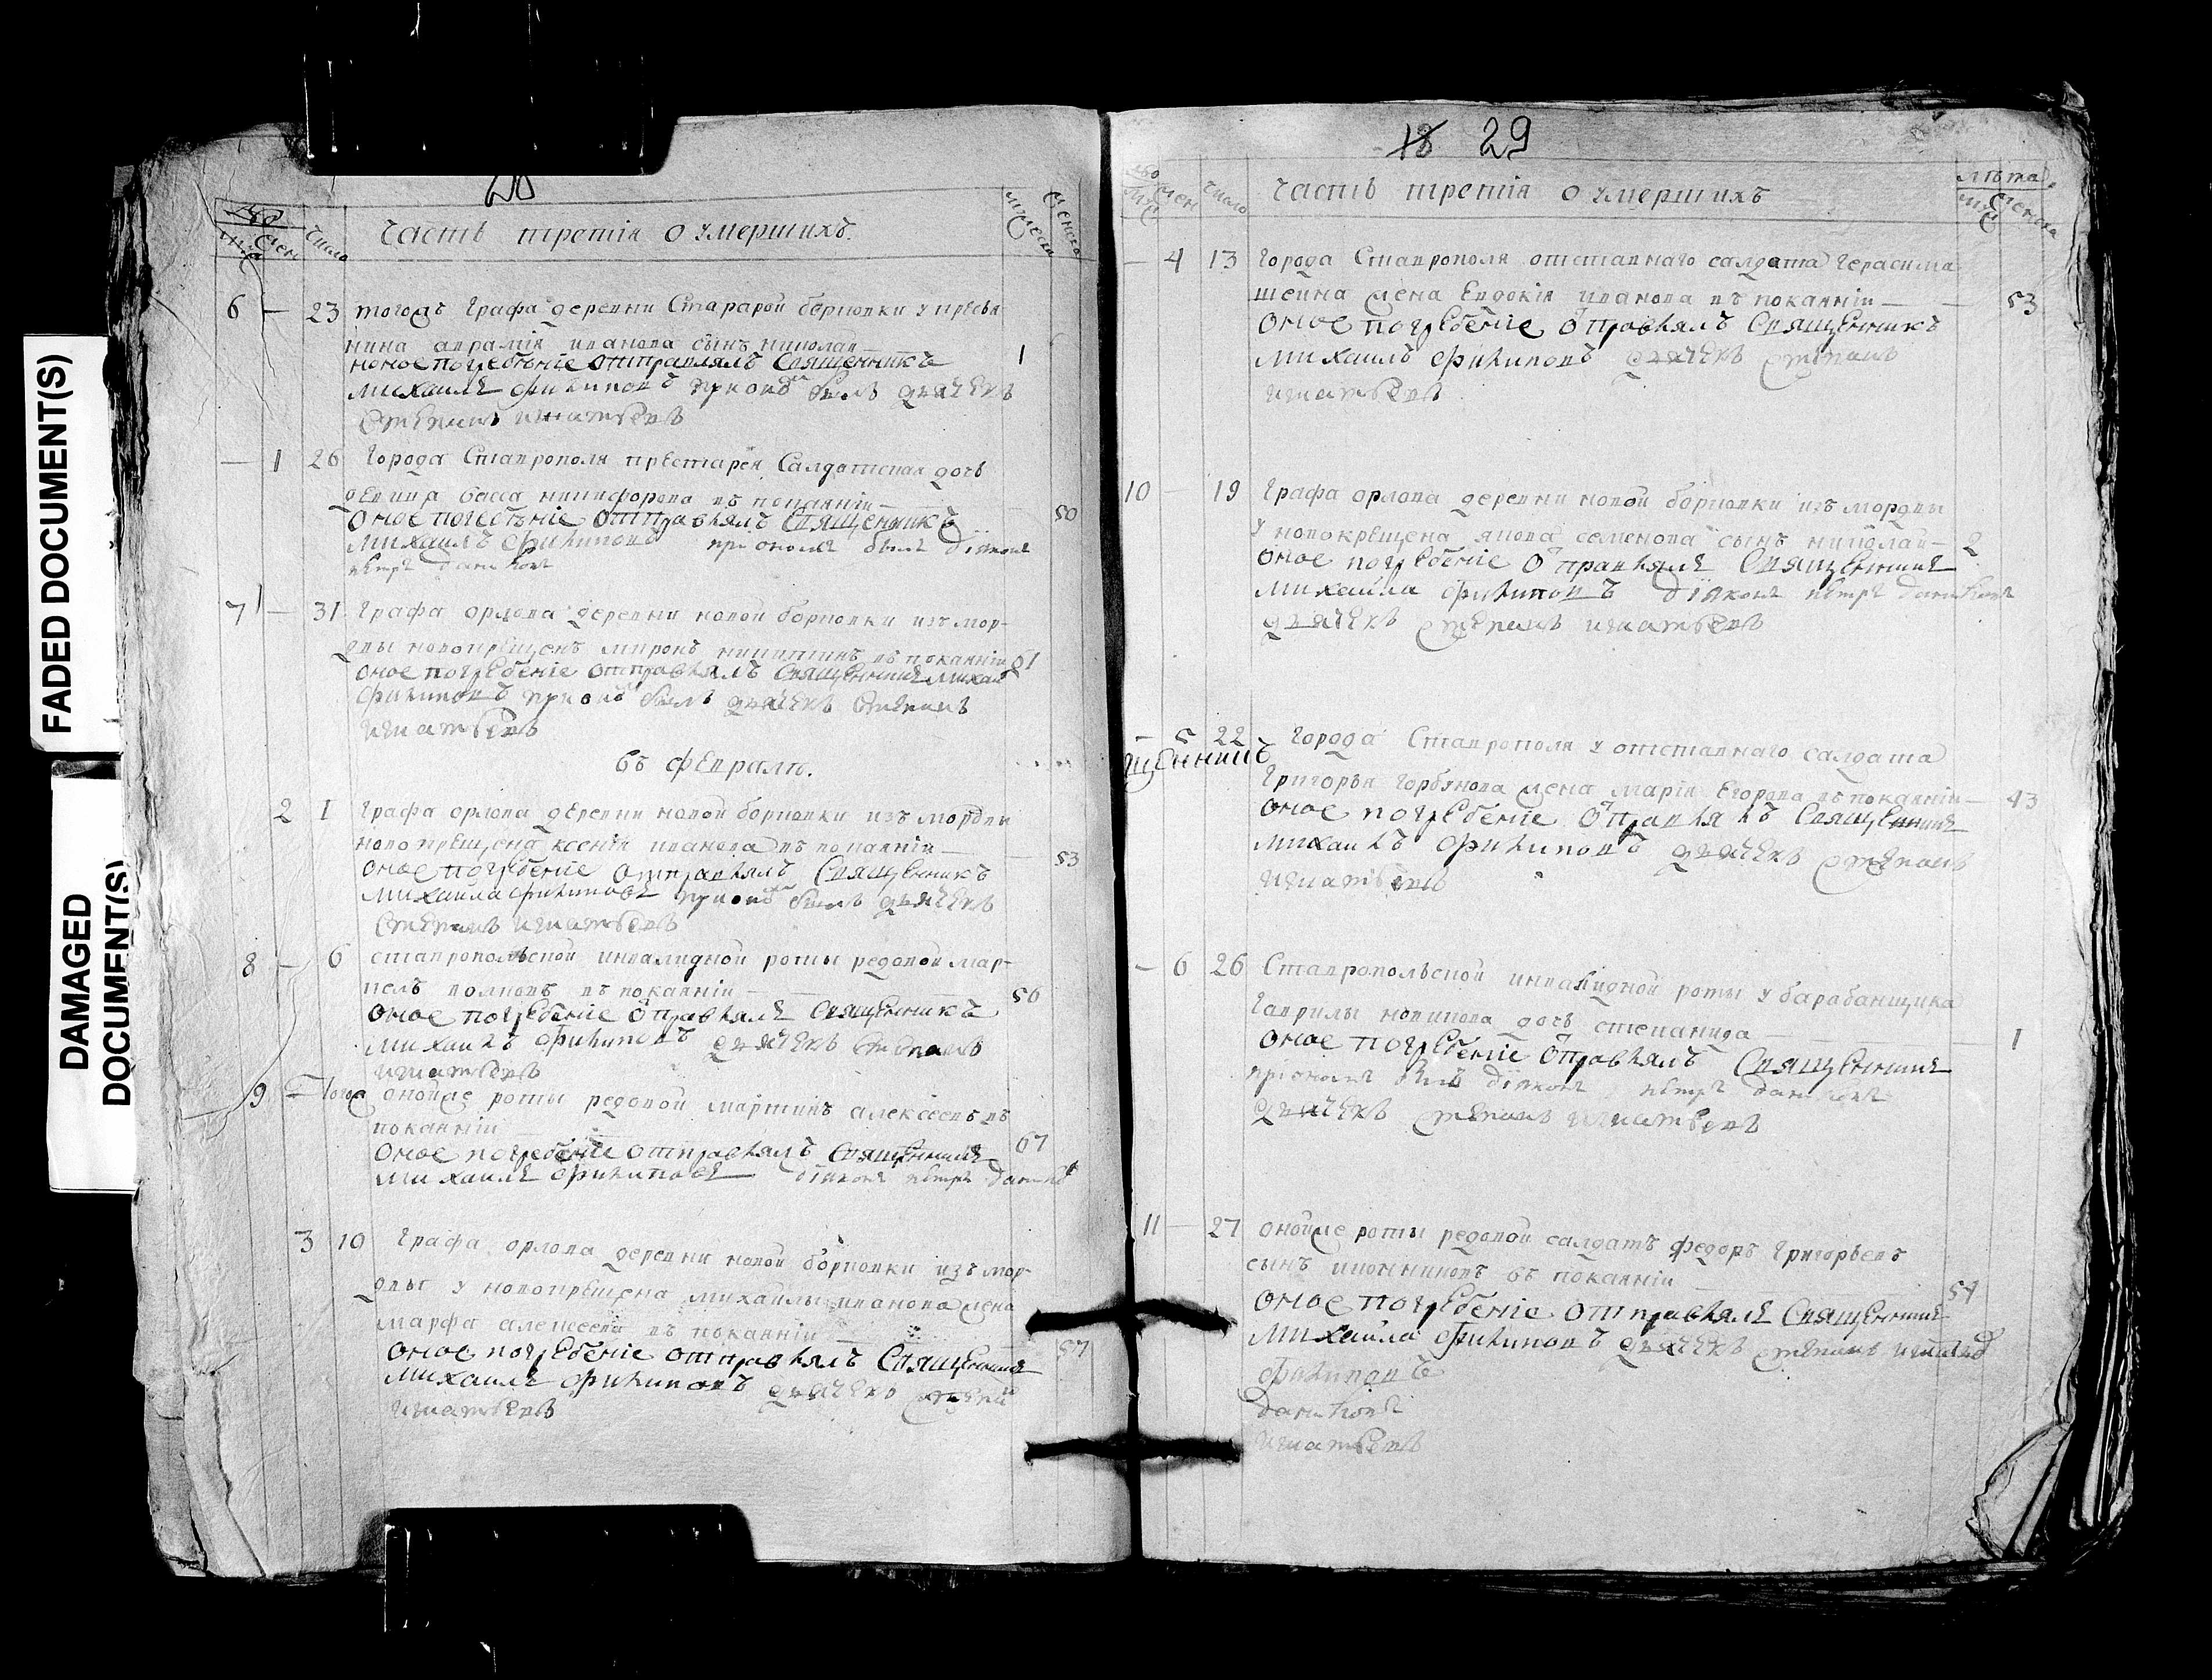 FADED DOCUMENT(S)
DAMAGED
DOCUMENT(S)
число
Часть третія о умершихъ.
6 — 23 тогожъ Графа деревни Старарой борковки у кресья
нина авраміа иванова сынъ николай — 1
оное погребѣніе отправлялъ Священникъ
михаилъ филиповъ при ономъ былъ дьячекъ
Степанъ игнатьевъ
— 1 26 Города Ставрополя престарей Салдатская дочь
девица васса никифорова въ покаяніи — 50
оное погребѣніе отправлялъ Священникъ
михаилъ филиповъ при ономъ былъ діяконъ
петръ даниловъ
7 — 31 Графа орлова деревни новой борковки изъ мор-
двы новокрещенъ миронъ никитинъ въ покаяніи 61
оное погребеніе отправлялъ Священникъ михаилъ
филиповъ при ономъ былъ дьячекъ Степанъ
игнатьевъ
въ февралѣ.
2 1 Графа орлова деревни новой борковки изъ мордвы
новокрещена ксенія иванова въ покаяніи — 53
оное погребеніе отправлялъ Священникъ
михаила филиповъ при ономъ былъ дьячекъ
Степанъ игнатьевъ
8 — 6 ставропольской инвалидной роты редовой мар-
келъ волковъ въ покаяніи — 56
оное погребеніе отправлялъ Священникъ
михаилъ филиповъ дьячекъ Степанъ
игнатьевъ
9 — того оной же роты редовой мартинъ алексеевъ въ
покаяніи — 67
оное погребеніе отправлялъ Священникъ
михаилъ филиповъ діяконъ петръ данилов
3 10 Графа орлова деревни новой борковки изъ мор-
двы у новокрещена михаилы иванова жена
марфа алексеева въ покаяніи — 57
оное погребеніе отправлялъ Священникъ
михаилъ филиповъ дьячекъ степанъ
игнатьевъ
18 29
число Часть третія о умершихъ лѣта
— 4 13 Города Ставрополя отставнаго салдата Герасима
шеина жена Евдокія иванова въ покаяніи — 53
оное погребеніе отправлялъ Священникъ
михаилъ филиповъ дьячекъ степанъ
игнатьевъ
10 — 19 Графа орлова деревни новой борковки изъ мордвы
у новокрещена якова семенова сынъ николай — 2
оное погребеніе отправлялъ Священникъ
михаила филиповъ діяконъ петръ даниловъ
дьячекъ степанъ игнатьевъ
— 5 22 Города Ставрополя у отставнаго салдата
щенникъ
Григорья Горбунова жена марія Егорова въ покаяніи — 43
оное погребеніе отправлялъ Священникъ
михаилъ филиповъ дьячекъ степанъ
игнатьевъ
— 6 26 Ставропольской инвалидной роты у барабанщика
гаврилы новикова дочь степанида — 1
оное погребеніе отправлялъ Священникъ
при ономъ былъ діяконъ петръ даниловъ
дьячекъ степанъ игнатьевъ
11 — 27 оной же роты редовой салдатъ федоръ Григорьевъ
сынъ въ покаяніи 54
оное погребеніе отправлялъ Священникъ
михаила филиповъ дьячекъ степанъ игнатьевъ
филиповъ
даниловъ
игнатьевъ